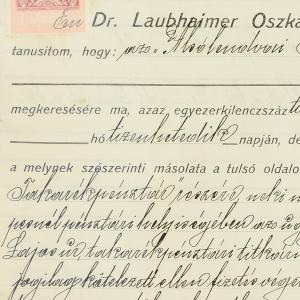 Én Dr. Laubhaimer Oszká
tanusítom, hogy: "Alsólendvai
megkeresésére ma, azaz egyezerkilenczszáz
hó tizenhetedik napján, de
a melynek szószerinti másolata a tulsó oldalo
Takarékpénztár részére, neki
pénztári helyiségében az
Lajos úr, takarékpénztári titkár
jogilag kötelezett ellen fizetés vége